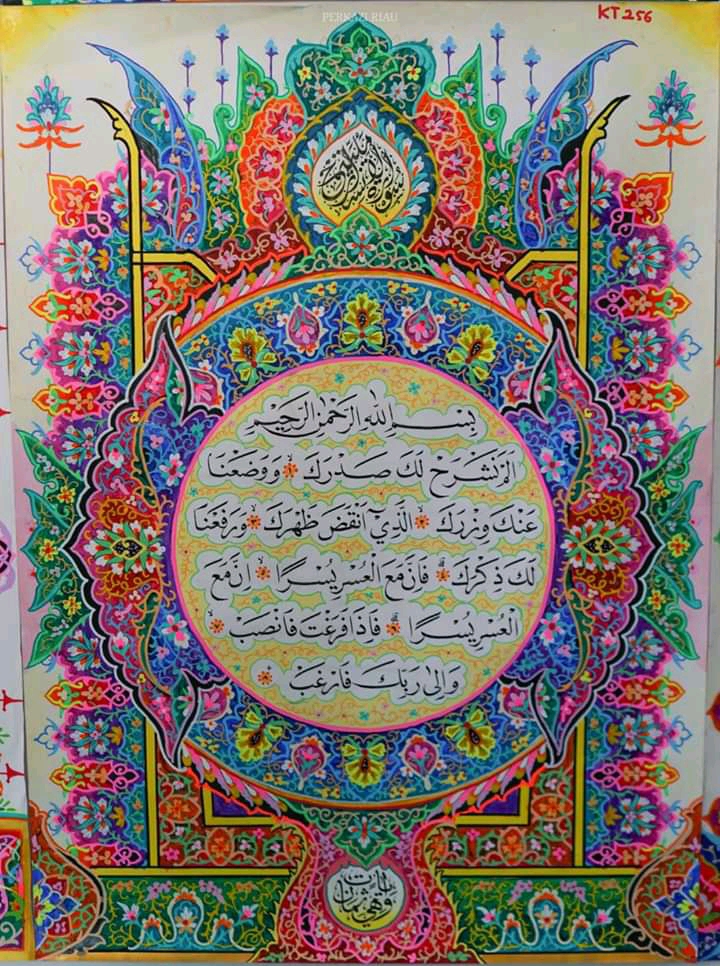 PERKAZI RIAU
KT 256
بسم الله الرحمن الرحيم
الم نشرح لك صدرك ۝ ووضعنا
عنك وزرك ۝ الذي انقض ظهرك ۝ ورفعنا
لك ذكرك ۝ فان مع العسر يسرا ۝ ان مع
العسر يسرا ۝ فاذا فرغت فانصب ۝
والى ربك فارغب ۝
وهي ثمان آيات